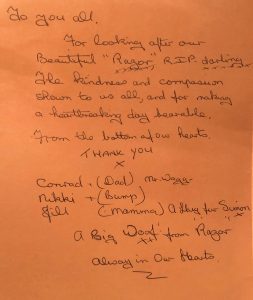 To you all,
For looking after our
Beautiful "Ragor" R.I.P. darling
The kindness and compassion
shown to us all, and for making
a heartbreaking day bearable.
From the bottom of our hearts.
THANK YOU
x
Conrad + (Dad) Mr. Wagg
Nikki + (Bump)
Jill (Mamma) A Hug for Simon
A Big "Woof" from "Ragor"
Always in Our Hearts.